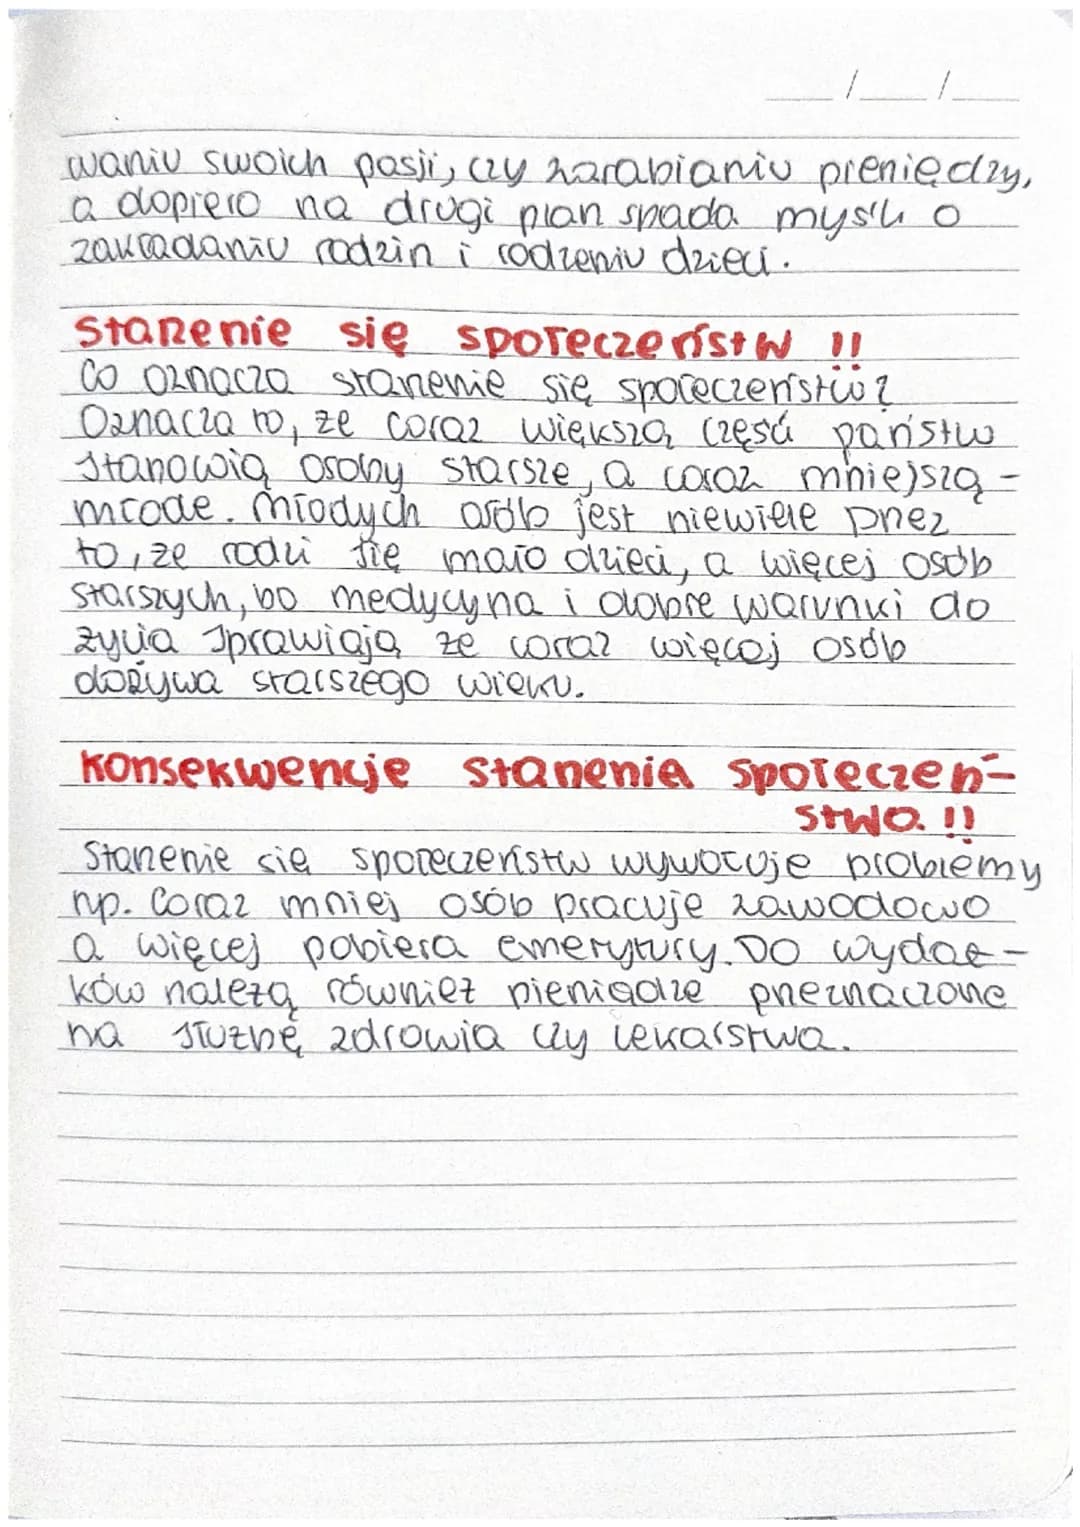 __/__/__
waniu swoich pasji, czy zarabianiu pieniędzy,
a dopiero na drugi plan spada myśli o
zakładaniu rodzin i rodzeniu dzieci.
Starzenie się społeczeństw !!
Co oznacza starzenie się społeczeństw?
Oznacza to, że coraz większą część państw
stanowią osoby starsze, a coraz mniejszą -
młode. Młodych osób jest niewiele przez
to, że rodzi się mało dzieci, a więcej osób
starszych, bo medycyna i dobre warunki do
życia sprawiają że coraz więcej osób
dożywa starszego wieku.
Konsekwencje starzenia społeczeń-
stwa. !!
Starzenie się społeczeństw wywołuje problemy
np. Coraz mniej osób pracuje zawodowo
a więcej pobiera emerytury. Do wydat-
ków należą również pieniądze przeznaczone
na służbę zdrowia czy lekarstwa.